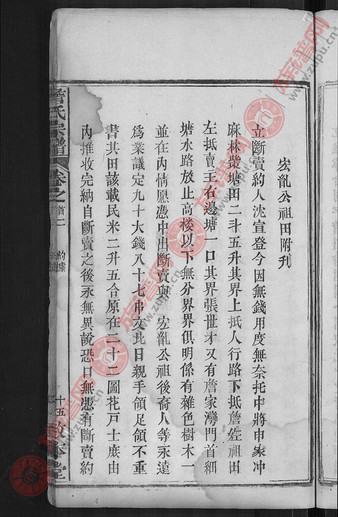 宏龍公祖田附刋
立斷賣約人沈宣登今因無錢用度無奈托中將申家冲
麻林壋塘田二斗五升其界上抵人行路下抵詹 祖田
左抵賣王右邊塘一口其界張世才又有詹家灣門首細
塘水路放止高樓以下無分界界俱明係有雜色樹木一
並在內情愿憑中出斷賣與 宏龍公祖後裔人等永遠
為業議定九十大錢八十七串文此日親手領足領不重
書其田該載民米二升五合原在二十二圖花戸士庶由
內推收完納自斷賣之後永無異說恐口無憑有斷賣約
氏宗譜
卷之首二
十五
堂